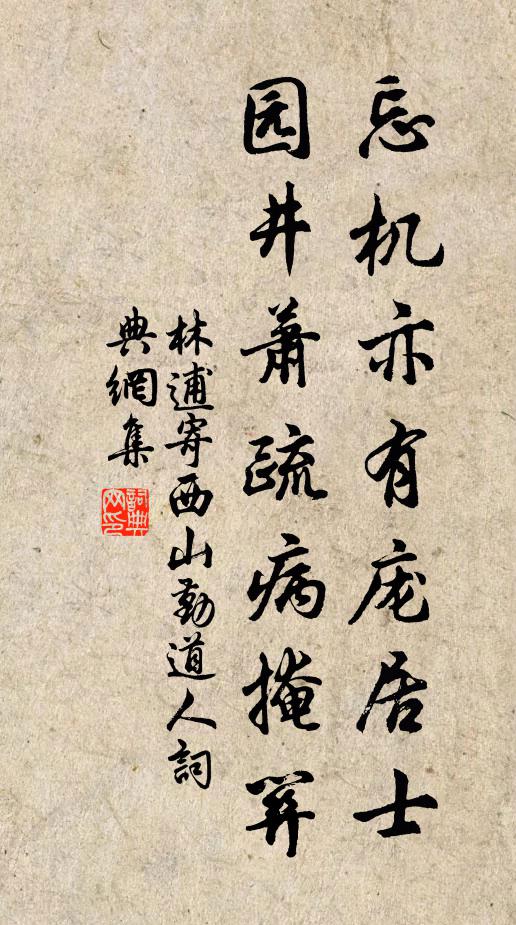 忘机亦有庞居士
园井蕭疏病掩関
林逋寄西山勤道人詞
典網集
詞典
网印